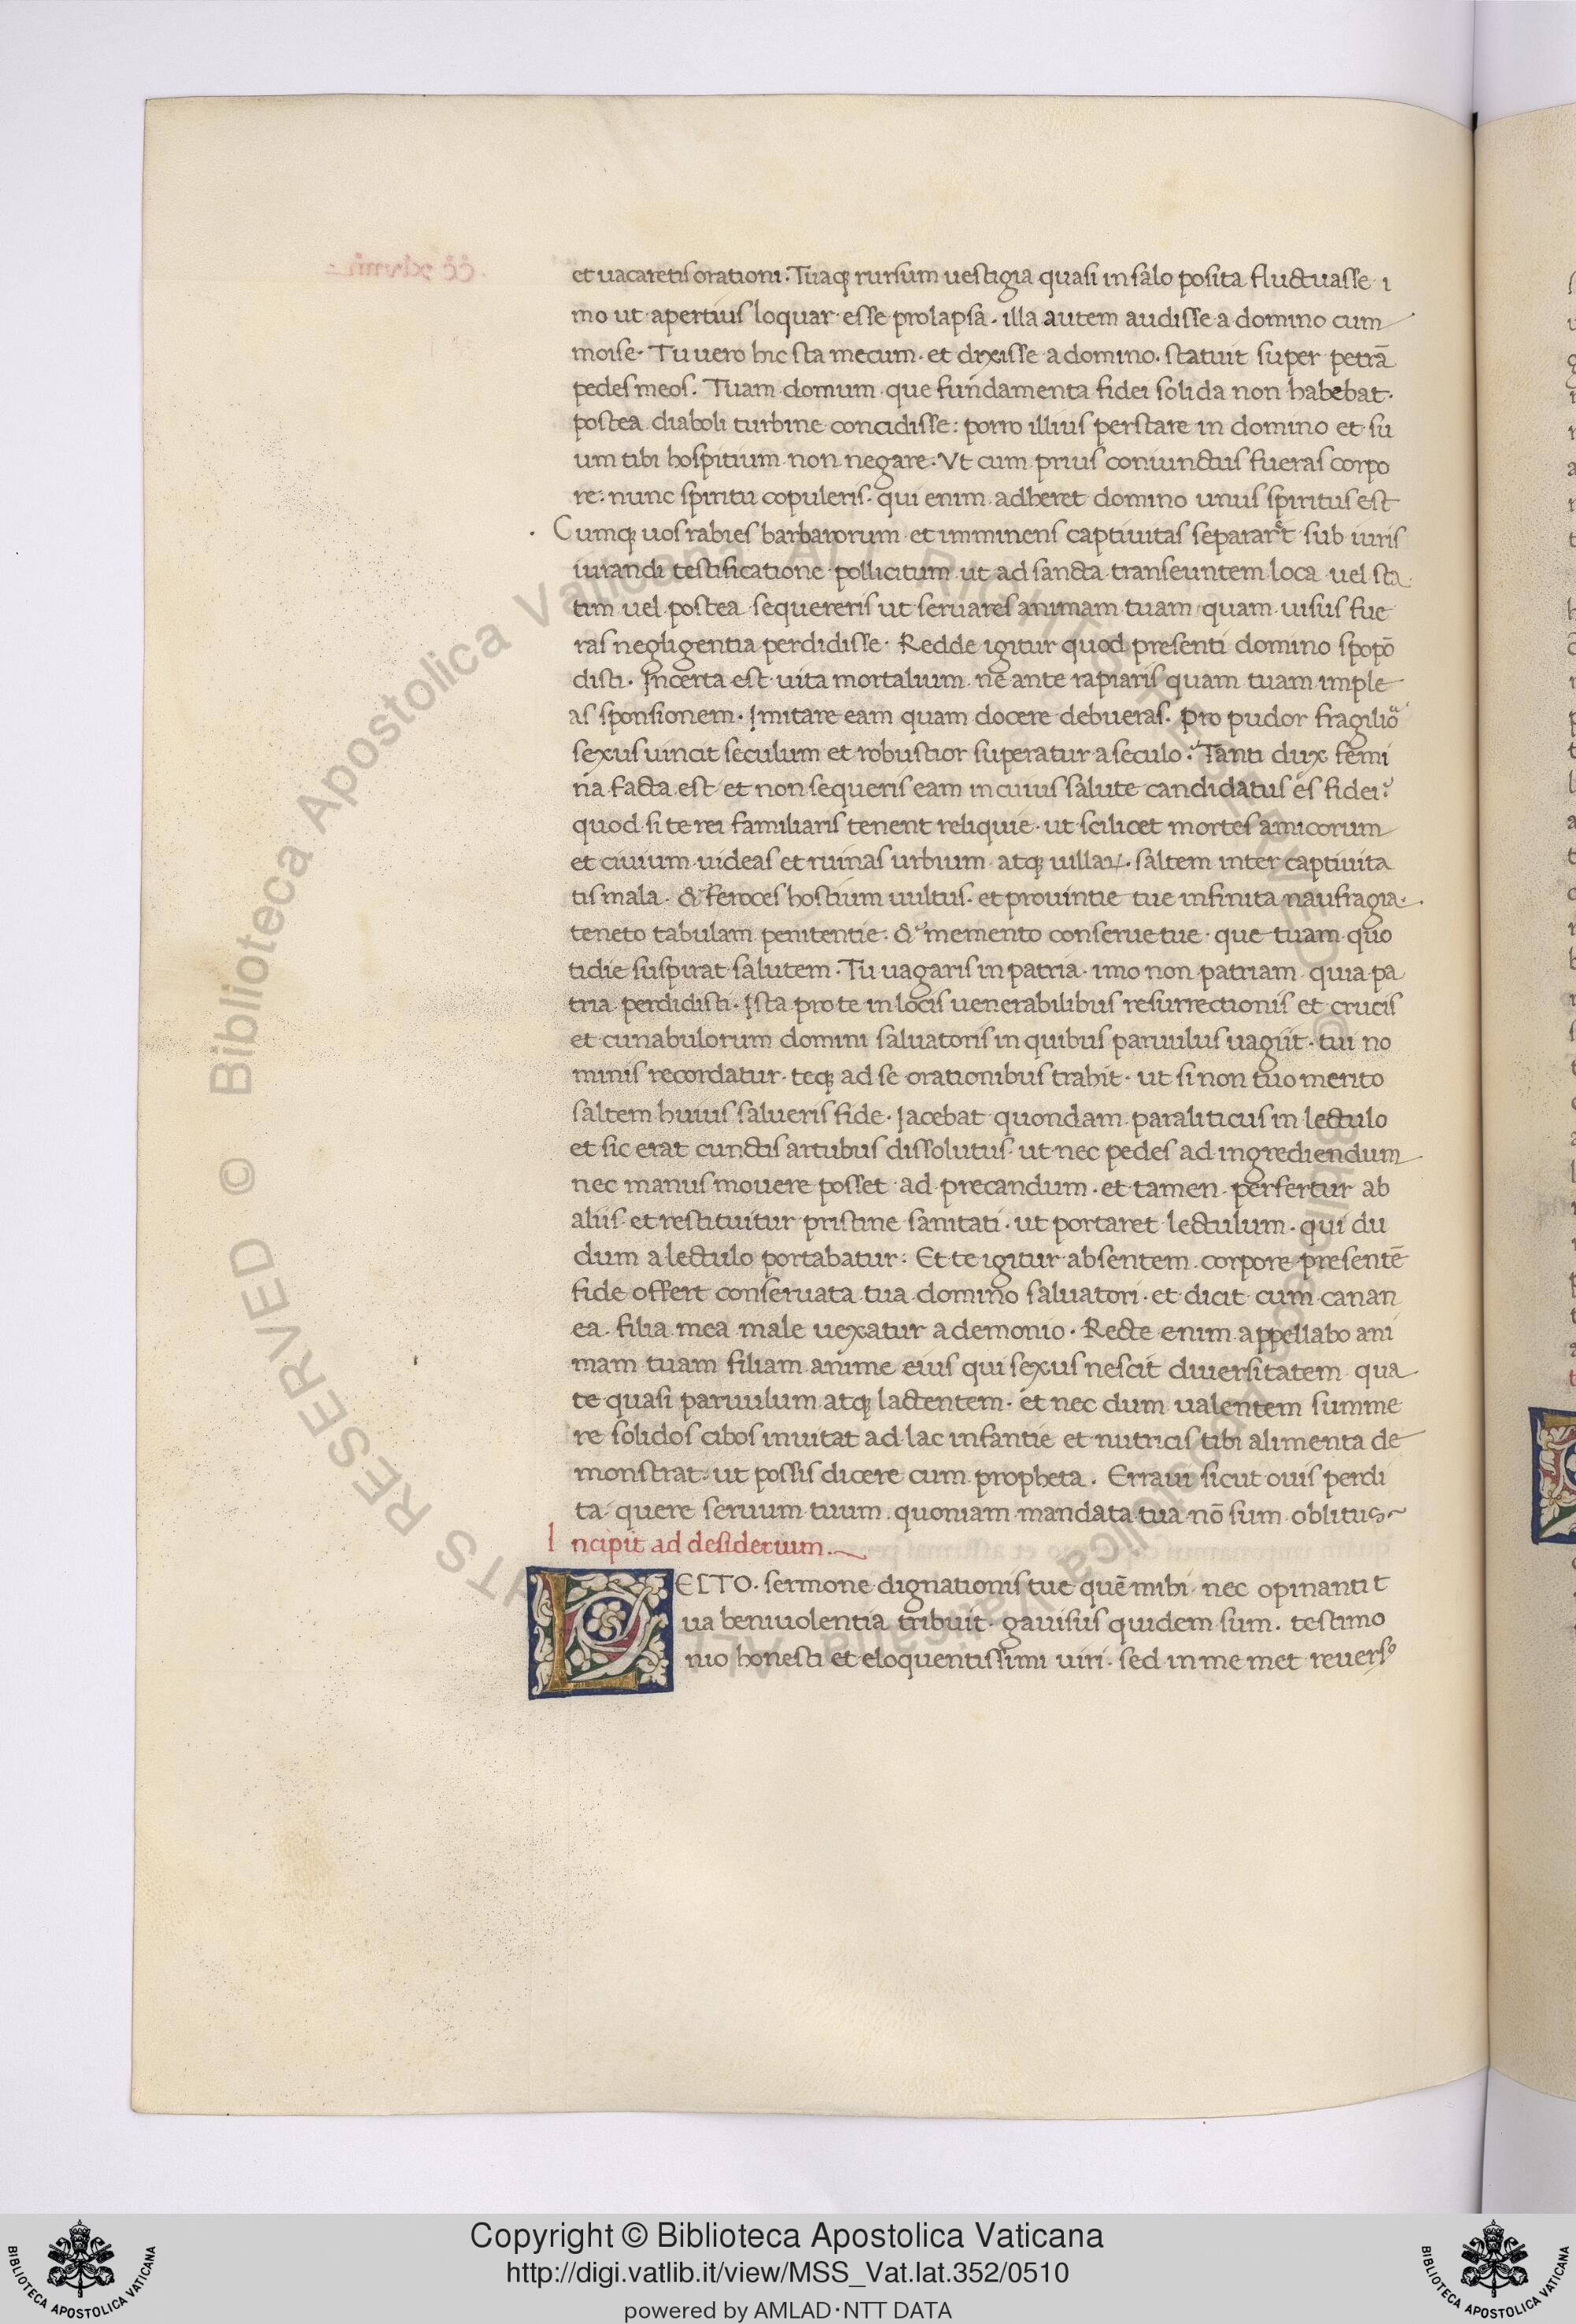 et uacaretis orationi. Tuaq rursum uestigia quasi in salo posita fluctuasse i
mo ut apertius loquar esse prolapsa. illa autem audisse a domino cum
moise. Tu uero hic sta mecum. et dixisse a domino. statuit super petrā
pedes meos. Tuam domum que fundamenta fidei solida non habebat.
postea diaboli turbine concidisse: porro illius perstare in domino et su
um tibi hospitium non negare. Vt cum prius coniunctus fueras corpo
re: nunc spiritu copuleris. qui enim adheret domino unus spiritus est
. Cumq uos rabies barbarorum et imminens captiuitas separaret sub iuris
iurandi testificatione pollicitum ut ad sancta transeuntem loca uel sta
tim uel postea sequereris ut seruares animam tuam quam uisus fue
ras negligentia perdidisse. Redde igitur quod presenti domino spopō
disti. Incerta est uita mortalium ne ante rapiaris quam tuam imple
as sponsionem. Imitare eam quam docere debueras. pro pudor fragilior
sexus uincit seculum et robustior superatur a seculo. Tanti dux femi
na facta est et non sequeris eam in cuius salute candidatus es fidei?
quod si te rei familiaris tenent reliquie. ut scilicet mortes amicorum
et ciuium uideas et ruinas urbium atq uillaꝝ. saltem inter captiuita
tis mala. & feroces hostium uultus. et prouintie tue infinita naufragia.
teneto tabulam penitentie. & memento conserue tue. que tuam quo
tidie suspirat salutem. Tu uagaris in patria. imo non patriam quia pa
tria perdidisti. Ista pro te in locis uenerabilibus resurrectionis et crucis
et cunabulorum domini saluatoris in quibus paruulus uagiit. tui no
minis recordatur. teq ad se orationibus trahit. ut si non tuo merito
saltem huius salueris fide. Iacebat quondam paraliticus in lectulo
et sic erat cunctis artubus dissolutus. ut nec pedes ad ingrediendum
nec manus mouere posset ad precandum. et tamen perfertur ab
aliis et restituitur pristine sanitati. ut portaret lectulum. qui du
dum a lectulo portabatur. Et te igitur absentem corpore presentē
fide offert conseruata tua domino saluatori. et dicit cum canan
ea. filia mea male uexatur a demonio. Recte enim appellabo ani
mam tuam filiam anime eius qui sexus nescit diuersitatem qua
te quasi paruulum atq lactentem. et nec dum ualentem summe
re solidos cibos inuitat ad lac infantie et nutricis tibi alimenta de
monstrat. ut possis dicere cum propheta. Erraui sicut ouis perdi
ta quere seruum tuum. quoniam mandata tua nō sum oblitus~
Incipit ad desiderium.
LECTO. sermone dignationis tue quē mihi nec opinanti t
ua beniuolentia tribuit. gauisus quidem sum. testimo
nio honesti et eloquentissimi uiri. sed in me met reuersꝰ
© Biblioteca Apostolica Vaticana ALL RIGHTS RESERVED © Biblioteca Apostolica Vaticana ALL RIGHTS RESERVED
BIBLIOTECA APOSTOLICA VATICANA
Copyright © Biblioteca Apostolica Vaticana
http://digi.vatlib.it/view/MSS_Vat.lat.352/0510
powered by AMLAD·NTT DATA
BIBLIOTECA APOSTOLICA VATICANA